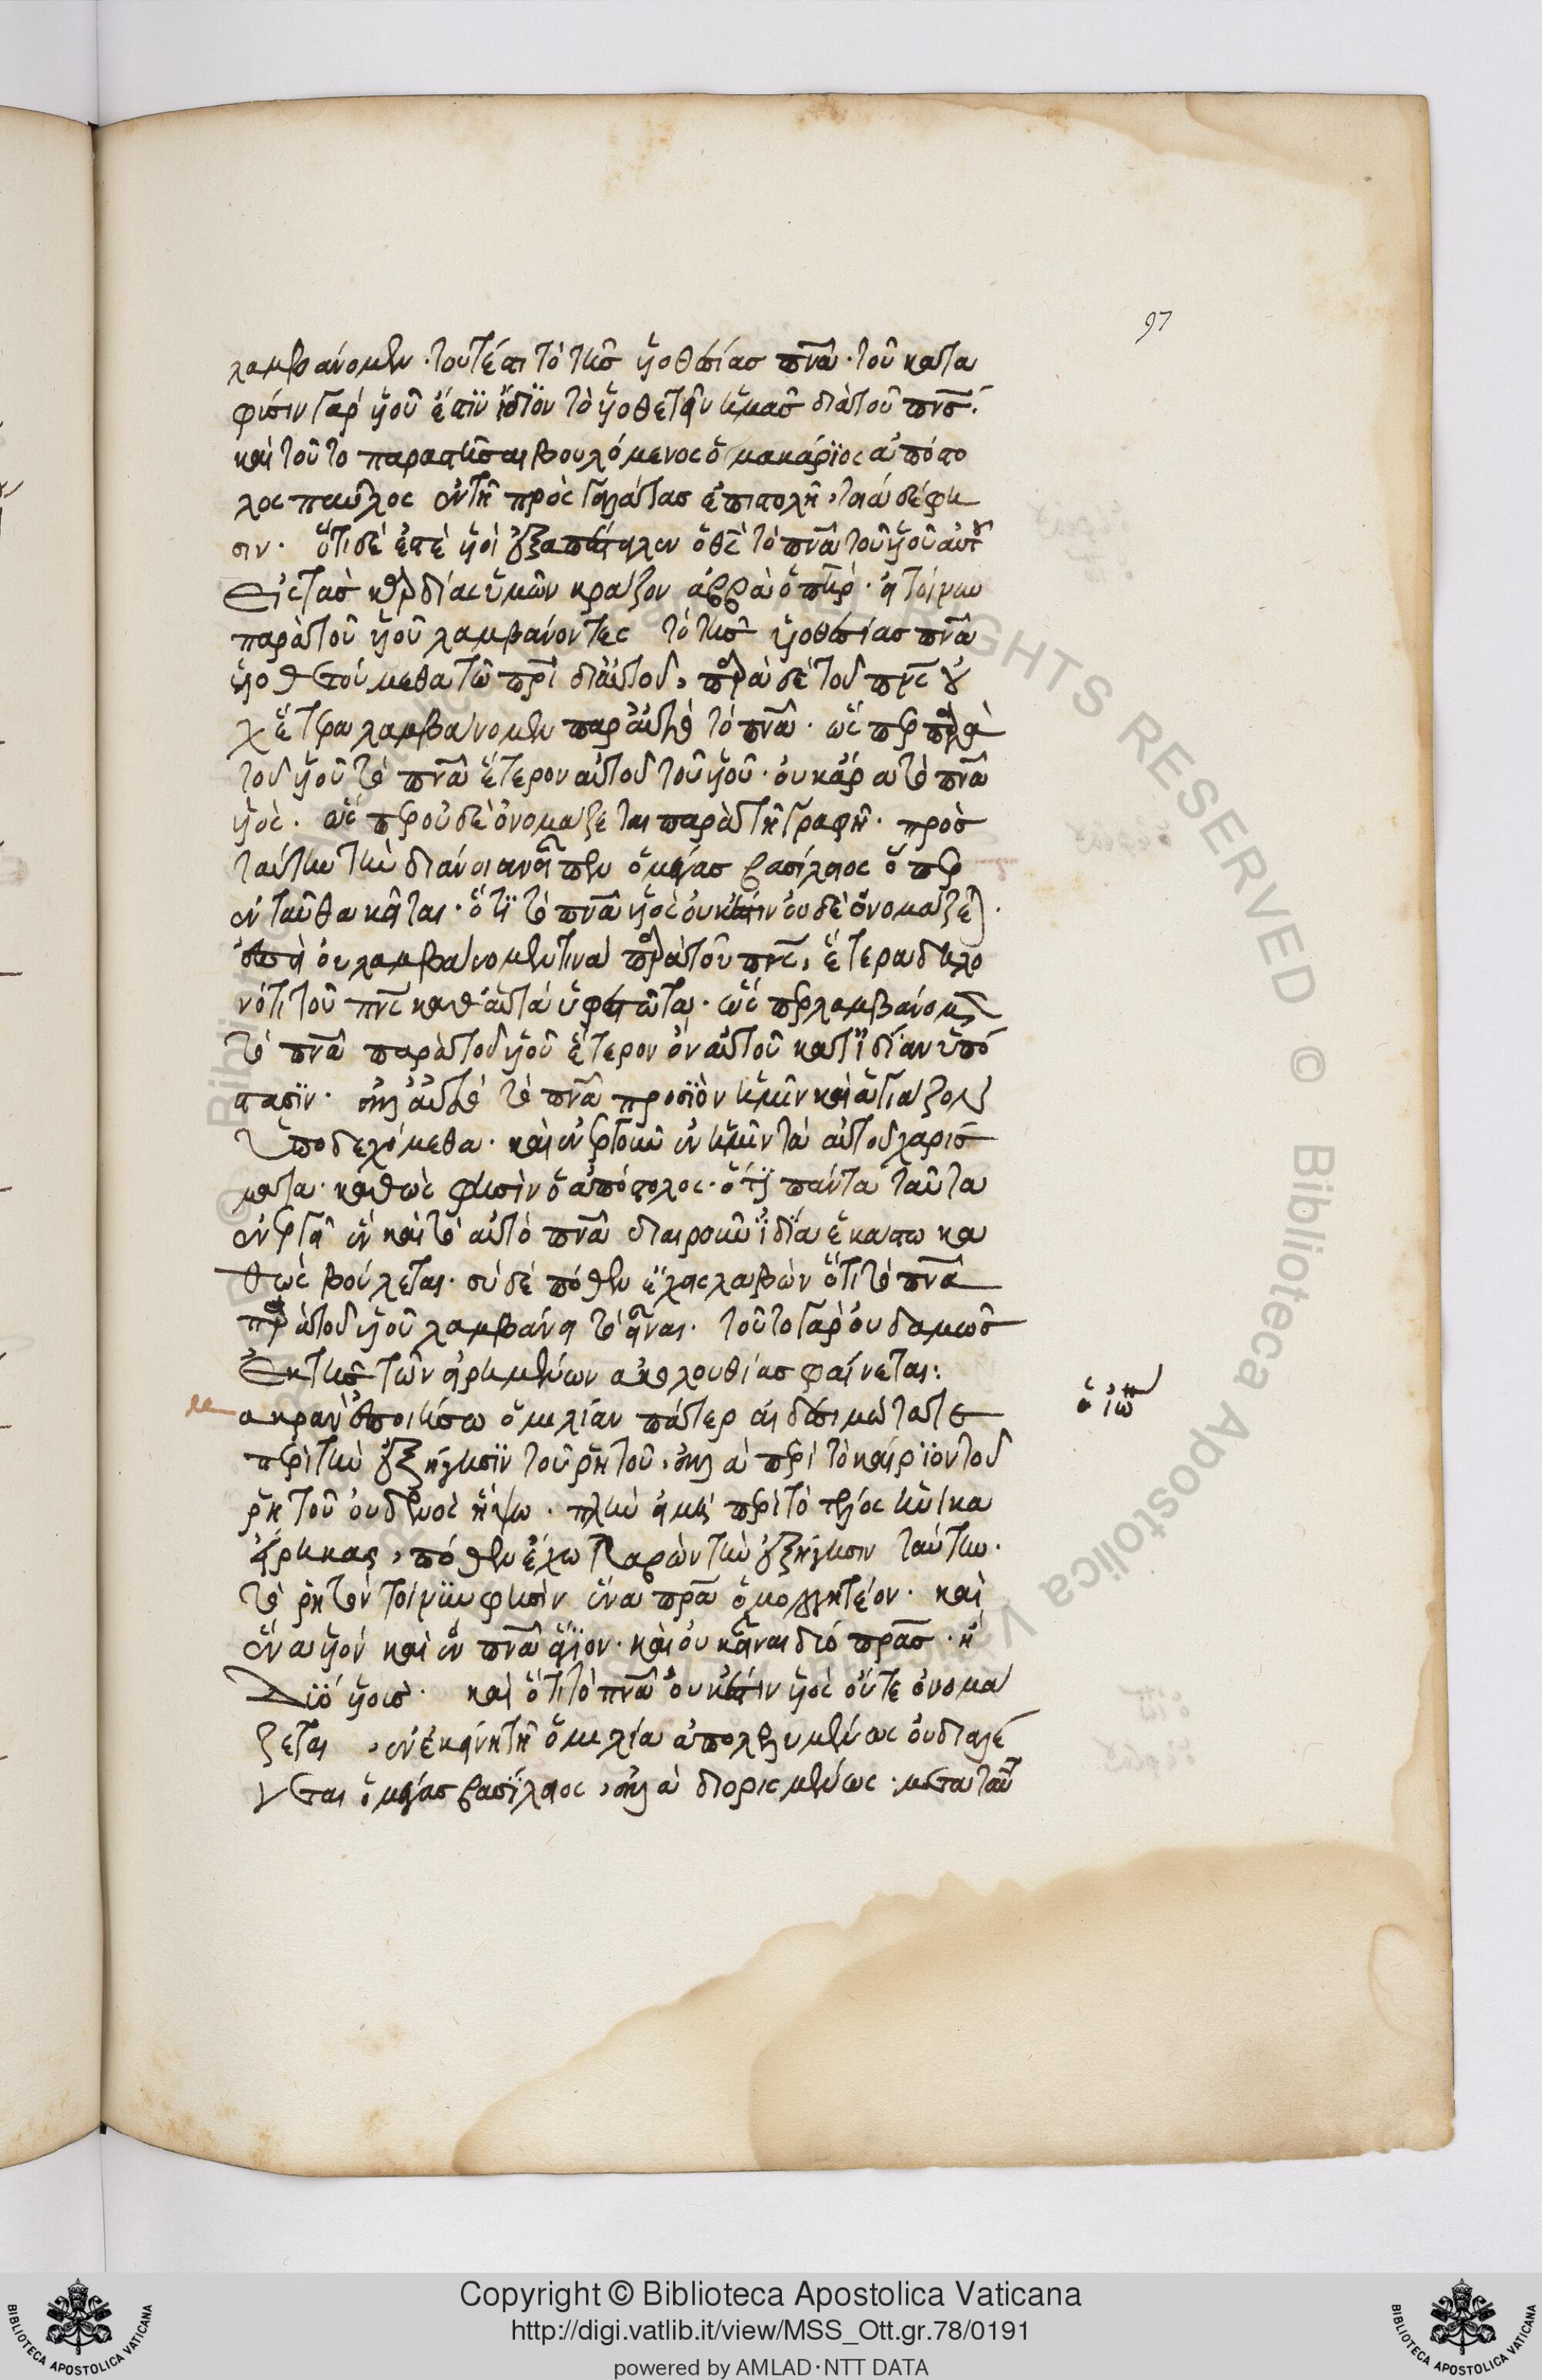 97
λαμβάνομεν · τουτέστι τὸ τῆς υἱοθεσίας πνα · τοῦ κατα
φύσιν γὰρ υἱοῦ ἐστὶν ἴδιον τὸ υἱοθετεῖν ἡμᾶς διὰ τοῦ πνς ·
καὶ τοῦτο παραστῆσαι βουλόμενος ὁ μακάριος ἀπόστο
λος παῦλος ἐν τῆ πρὸς γαλάτας ἐπιστολῆ, τοιῶσδέ φη
σιν · ὅτι δέ ἐστὲ υἱοὶ ἐξαπέστειλεν ὁ θς τὸ πνα τοῦ υἱοῦ αὐτοῦ
εἰς τὰς καρδίας ὑμῶν κράζον ἀββὰ ὁ πηρ · εἰ τοίνυν
παρὰ τοῦ υἱοῦ λαμβάνοντες τὸ τῆς υἱοθεσίας πνα
υἱοθετούμεθα τῶ πρι δι αὐτοῦ, παρὰ δὲ τοῦ πνς οὐ
χ ἕτερα λαμβάνομεν παρ αὐτὸ τὸ πνα · ὥς περ παρὰ
τοῦ υἱοῦ τὸ πνα ἕτερον αὐτοῦ τοῦ υἱοῦ · οὐκ ἄρα τὸ πνα
υἱὸς · ὥς περ οὐδὲ ὀνομάζεται παρὰ τῆ γραφῆ · πρὸς
ταύτην τὴν διάνοιαν εἶπεν ὁ μέγας βασίλειος ὅ περ
ἐνταῦθα κεῖται · ὅτι τὸ πνα υἱὸς οὐκ ἔστιν οὐδὲ ὀνομάζεται ·
ἐπεὶ οὐ λαμβάνομεν τινὰ παρὰ τοῦ πνς, ἕτερα δηλο
νότι τοῦ πνς καθ αὑτὰ ὑφεστῶτα · ὥς περ λαμβάνομεν
τὸ πνα παρὰ τοῦ υἱοῦ ἕτερον ὂν αὐτοῦ κατ ἰδίαν ὑπό
στασιν · ἀλλ αὐτὸ τὸ πνα προσιὸν ἡμῖν καὶ ἁγιάζον
ὑποδεχόμεθα · καὶ ἐνεργοῦν ἐν ἡμῖν τὰ αὐτοῦ χαρίσ
ματα · καθὼς φησὶν ὁ ἀπόστολος · ὅτι πάντα ταῦτα
ἐνεργεῖ ἓν καὶ τὸ αὐτὸ πνα διαιροῦν ἰδία ἑκάστω κα
θὼς βούλεται · σὺ δὲ πόθεν ἔχεις λαβὼν ὅτι τὸ πνα
παρὰ τοῦ υἱοῦ λαμβάνει τὸ εἶναι · τοῦτο γὰρ οὐδαμῶς
ἐκ τῆς τῶν εἰρημένων ἀκολουθίας φαίνεται :
ὁ ἰω
μακρὰν ἐποιήσω ὁμιλίαν πάτερ αἰδεσιμώτατε
περὶ τὴν ἐξήγησιν τοῦ ῥητοῦ, ἀλλὰ περὶ τὸ καίριον τοῦ
ῥητοῦ οὐδενὸς ἥψω · πλὴν εἰ μὴ περὶ τὸ τέλος ἡνίκα
εἴρηκας, πόθεν ἔχω λαβὼν τὴν ἐξήγησιν ταύτην ·
τὸ ῥητὸν τοίνυν φησὶν ἕνα πρα ὁμολογητέον · καὶ
ἕνα υἱόν καὶ ἓν πνα ἅγιον · καὶ οὐκ εἶναι δύο πρας · ἢ
δύο υἱοὺς · καὶ ὅτι τὸ πνα οὐκ ἔστιν υἱὸς οὔτε ὀνομά
ζεται, ἐν ἐκείνη τῆ ὁμιλία ἀπολελυμένως οὐ διαλέ
γεται ὁ μέγας βασίλειος, ἀλλὰ διορισμένως · μετὰ ταῦτ